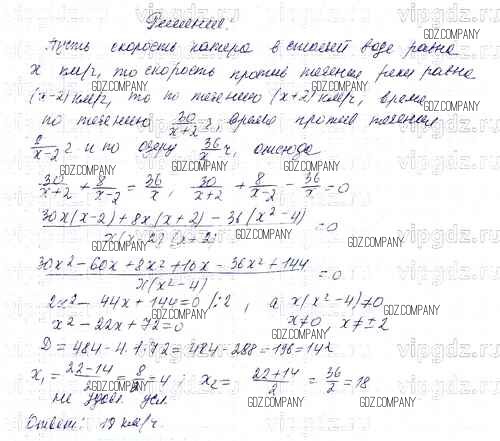 Решение:
Пусть скорость катера в стоячей воде равна
x км/ч, то скорость против течения реки равна
(x-2) км/ч, то по течению (x+2) км/ч, время
по течению 30/(x+2) ч, время против течения
8/(x-2) ч и по озеру 36/x ч, отсюда
30/(x+2) + 8/(x-2) = 36/x, 30/(x+2) + 8/(x-2) - 36/x = 0
(30x(x-2) + 8x(x+2) - 36(x²-4))/(x(x-2)(x+2)) = 0
(30x² - 60x + 8x² + 16x - 36x² + 144)/(x(x²-4)) = 0
2x² - 44x + 144 = 0 /:2, а x(x²-4)≠0
x² - 22x + 72 = 0 x≠0 x≠±2
D = 484 - 4·1·72 = 484 - 288 = 196 = 14²
x₁ = (22-14)/2 = 8/2 = 4; x₂ = (22+14)/2 = 36/2 = 18
не удовл. усл.
Ответ: 18 км/ч.
GDZ.COMPANY
vipgdz.com